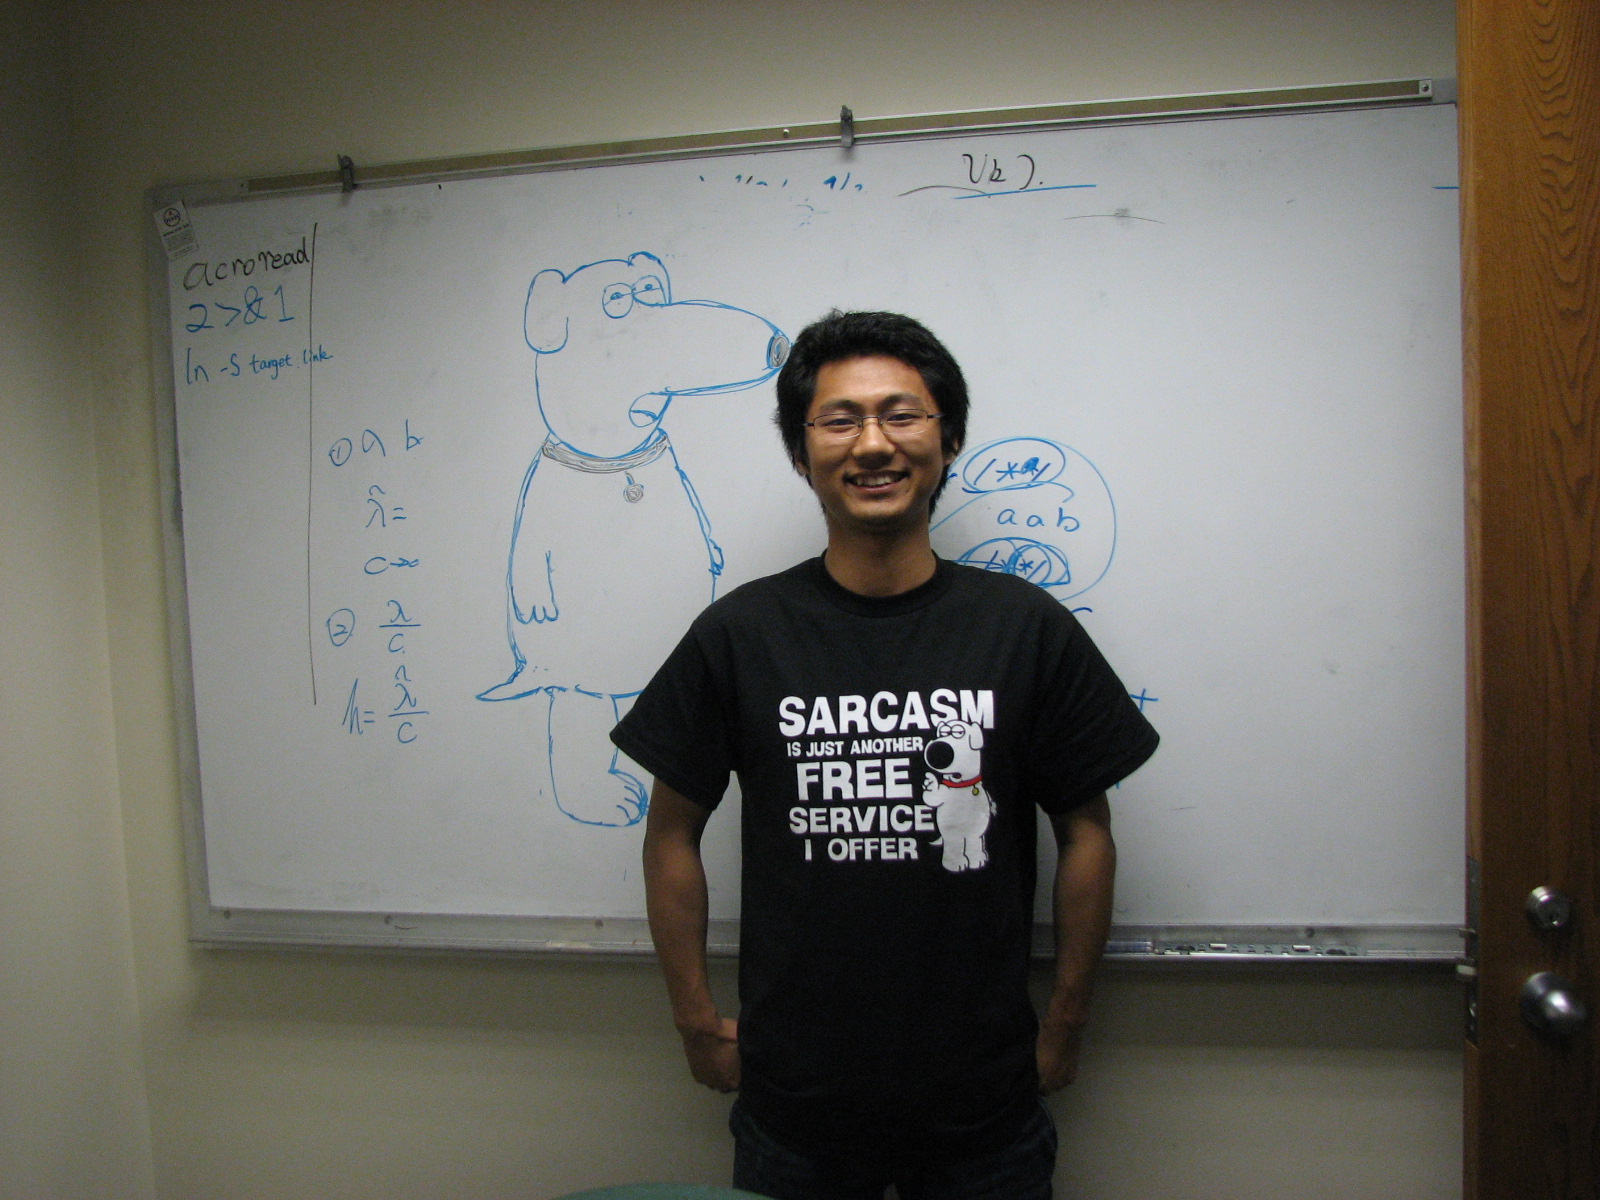 acroread
2>&1
ln -s target link
① a b
λ̂ =
c→∞
② λ/c
h = λ̂/c
a a b
SARCASM
IS JUST ANOTHER
FREE
SERVICE
I OFFER